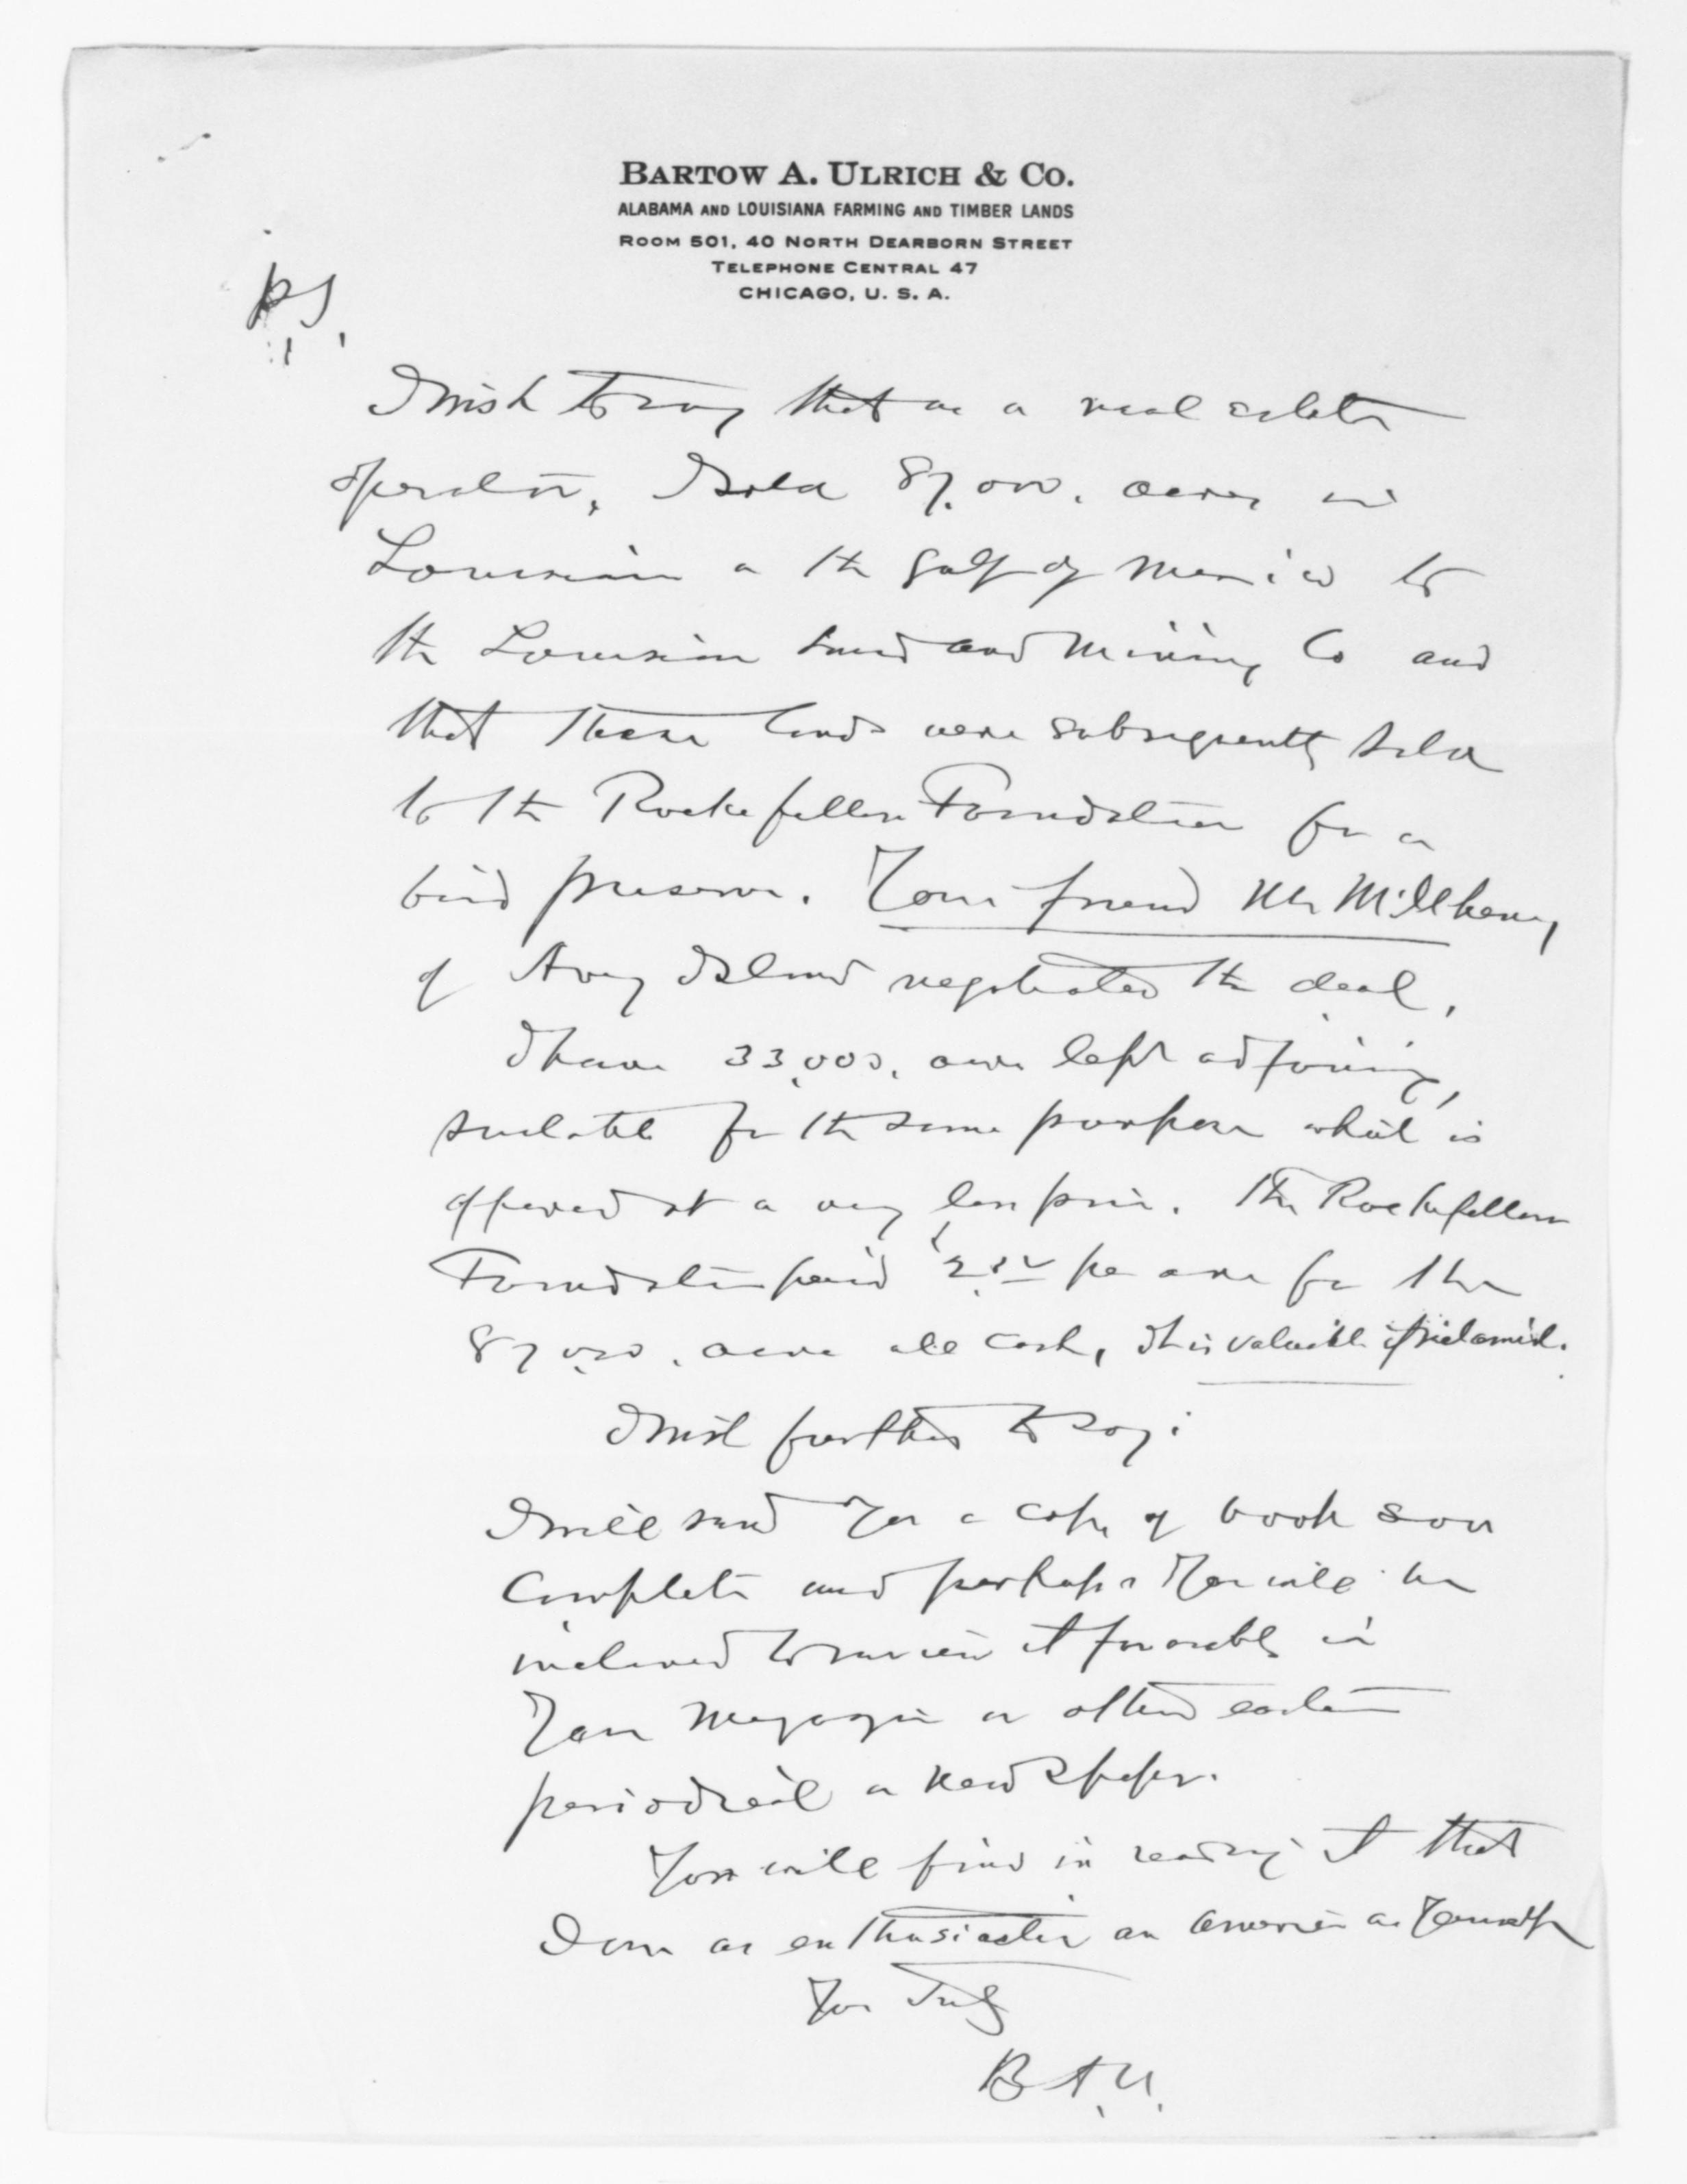 BARTOW A. ULRICH & CO.
ALABAMA AND LOUISIANA FARMING AND TIMBER LANDS
ROOM 501, 40 NORTH DEARBORN STREET
TELEPHONE CENTRAL 47
CHICAGO, U. S. A.
P.S.
I wish to say that as a real estate
operator, I sold 87,000, acres in
Louisiana on the gulf of Mexico to
the Louisiana Land and Mining Co and
that these lands were subsequently sold
to the Rockefeller Foundation for a
bird preserve. Your friend Mr McIlhenny
of Avery Island negotiated the deal,
I have 33,000, acres left adjoining,
suitable for the same purpose which is
offered at a very low price. The Rockefeller
Foundation paid per acre for the
87,000, acres all cash, It is valuable
I wish further to say:
I will send you a copy of book soon
complete and perhaps you will be
inclined to review it favorably in
Your Magazine or other eastern
periodical or newspaper.
You will find in reading it that
I am as enthusiastic an American as Yourself
You Truly
B A. U.